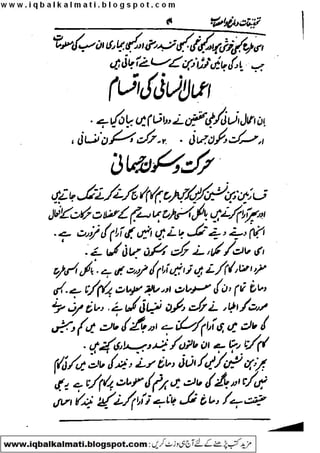 www.iqbalkalmati.blogspot.com
اسی طرح کبھی خوشی ہو اور کبھی غمی، کبھی تندرستی اور کبھی بیماری ان سب کی معلومات
جب یاد کی جائیں فوراً ذہن کے سامنے آ جاتی ہیں
اعمال انسانی کی اقسام
ان اعمال انسانی کو طبی محققین نے دو اقسام میں بیان کیا ہے۔
۱۔ حرکت و سکون جسمانی۔ ۲۔ حرکت و سکون نفسانی،
حرکت و سکون جسمانی
قارئین ذہن نشین کر لیں کہ جس طرح ہم کام کاج کرتے کرتے تھک جاتے ہیں
اور پھر آرام کرتے ہیں بالکل اسی طرح ہمارے جسم کے عضلات حرکات کے افعال
انجام دیتے دیتے تھک جاتے ہیں انہیں بھی آرام کی ضرورت ہے۔
اسی حالت کو حکماء نے حرکت و سکون جسمانی کہا ہے۔
مفرد اعضاء کام کرتے ہیں تو انہیں آرام کی ضرورت بھی ہے۔ بالکل اسی طرح
دماغ تمام دن کی معلومات اور سابقہ معلومات پر کام کرتا ہے۔ اسی
صورت کو اطباء نے حرکت و سکون نفسیاتی لکھا ہے، دماغ صرف سونے
کی حالت میں ہی آرام کر سکتا ہے اور جاگنے کی حالت میں کم و بیش
کام کرتا رہتا ہے ان حالتوں کو نیند و بیداری کہتے ہیں۔
پھر ذہن نشین کر لیں کہ انسانی دماغ سونے و نیند کی حالت میں کوئی کام
نہیں کرتا اور جاگنے کی حالت میں ہر قسم کی معلومات پر کام کرتا ہے یہ بھی
حقیقت ہے کہ دماغ تھک جاتا ہے تو آرام کرنے کیلئے نیند کا احساس
مزید کتب پڑھنے کے لئے آج ہی وزٹ کریں : www.iqbalkalmati.blogspot.com